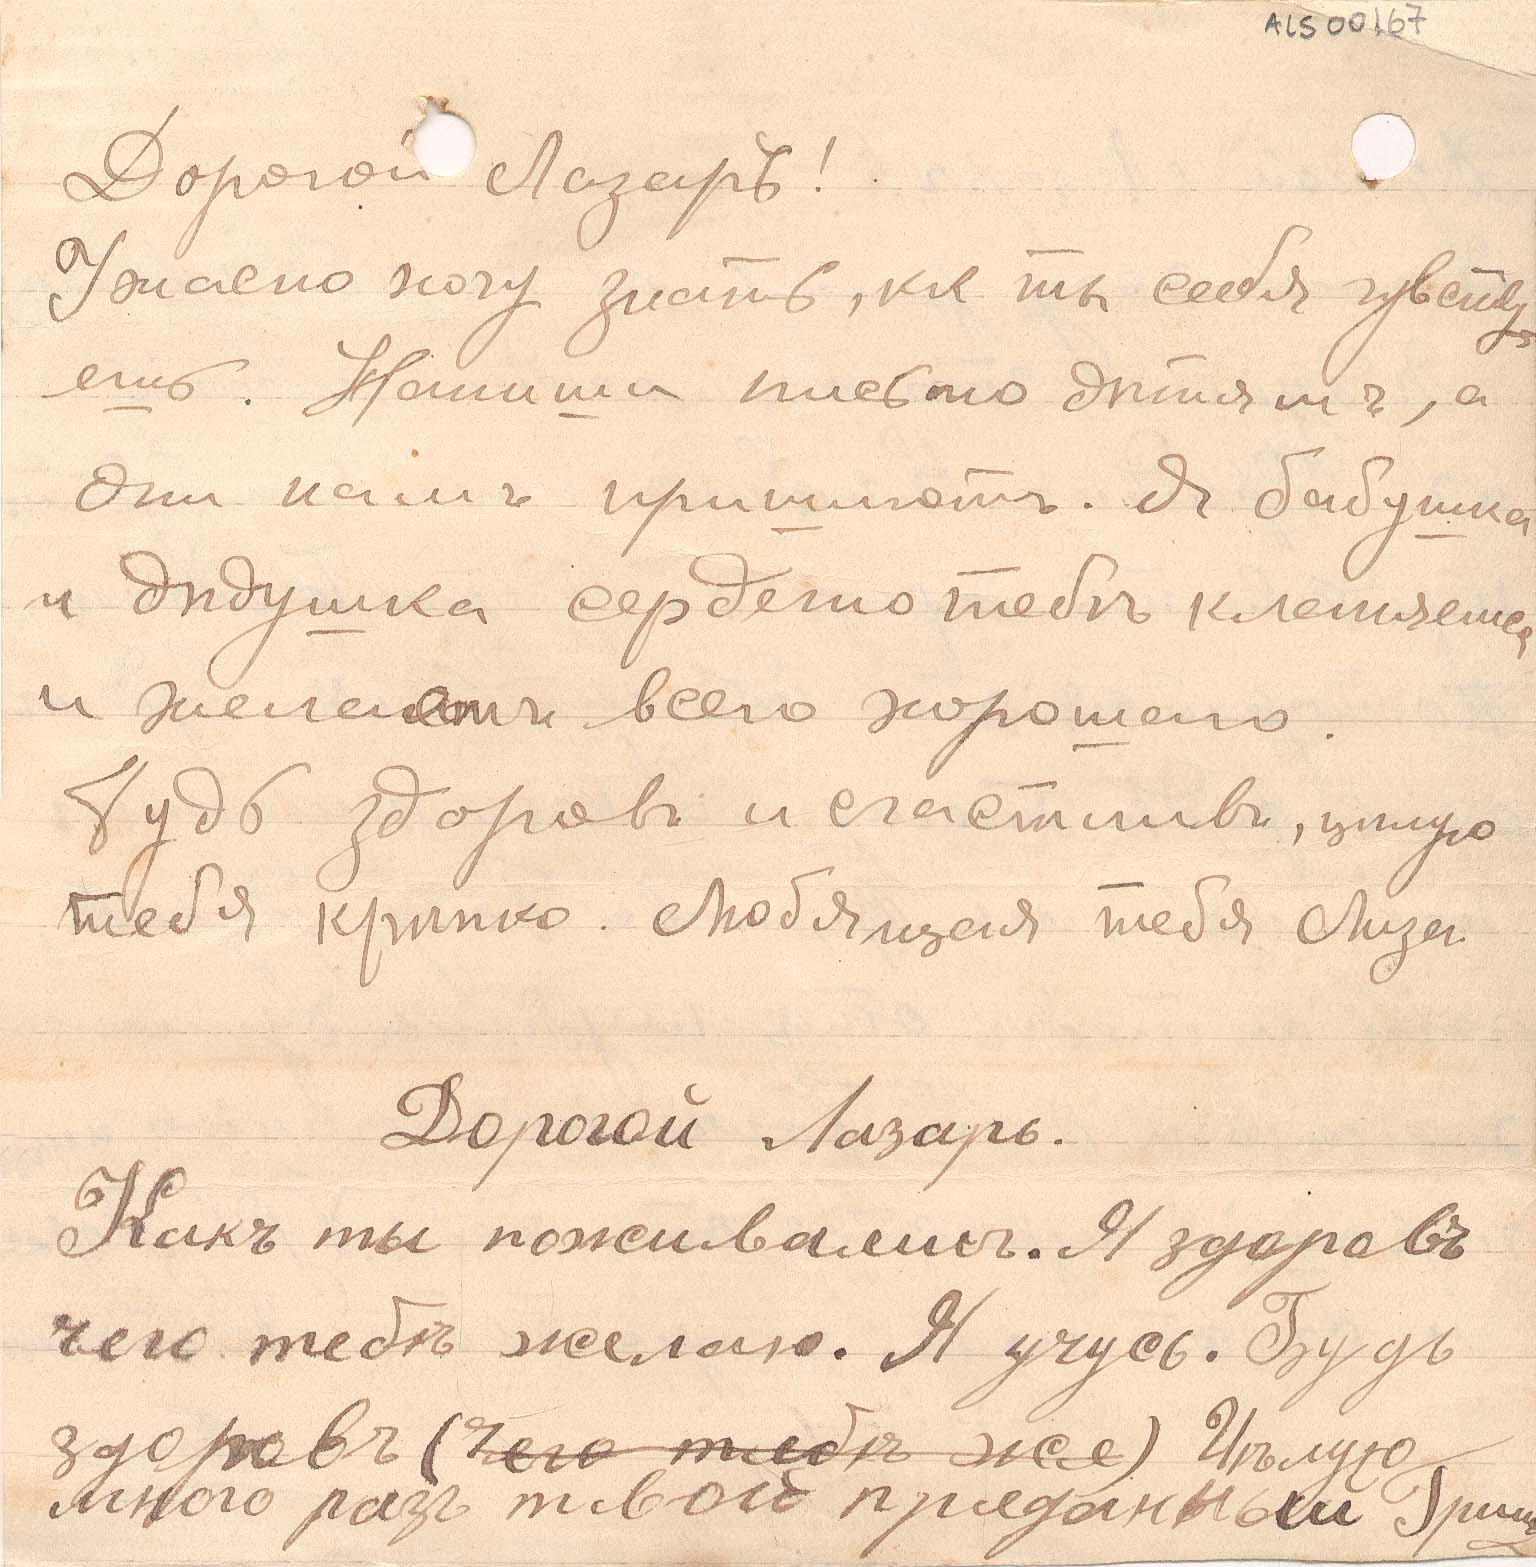 ALS 00167
Дорогой Лазарь!
Ужасно хочу знать, кк ты себя чувству
ешь. Напиши письмо дѣтямъ, а
они намъ пришлютъ. Я бабушка
и дѣдушка сердечно тебѣ кланяемся
и желаемъ всего хорошаго.
Будь здоровъ и счастливъ, цѣлую
тебя крѣпко. Любящая тебя Лиза
Дорогой Лазарь.
Какъ ты поживаешь. Я здоровъ
чего тебѣ желаю. Я учусь. Будь
здоровъ (чего тебѣ же) Цѣлую
много разъ твой преданный Гриша